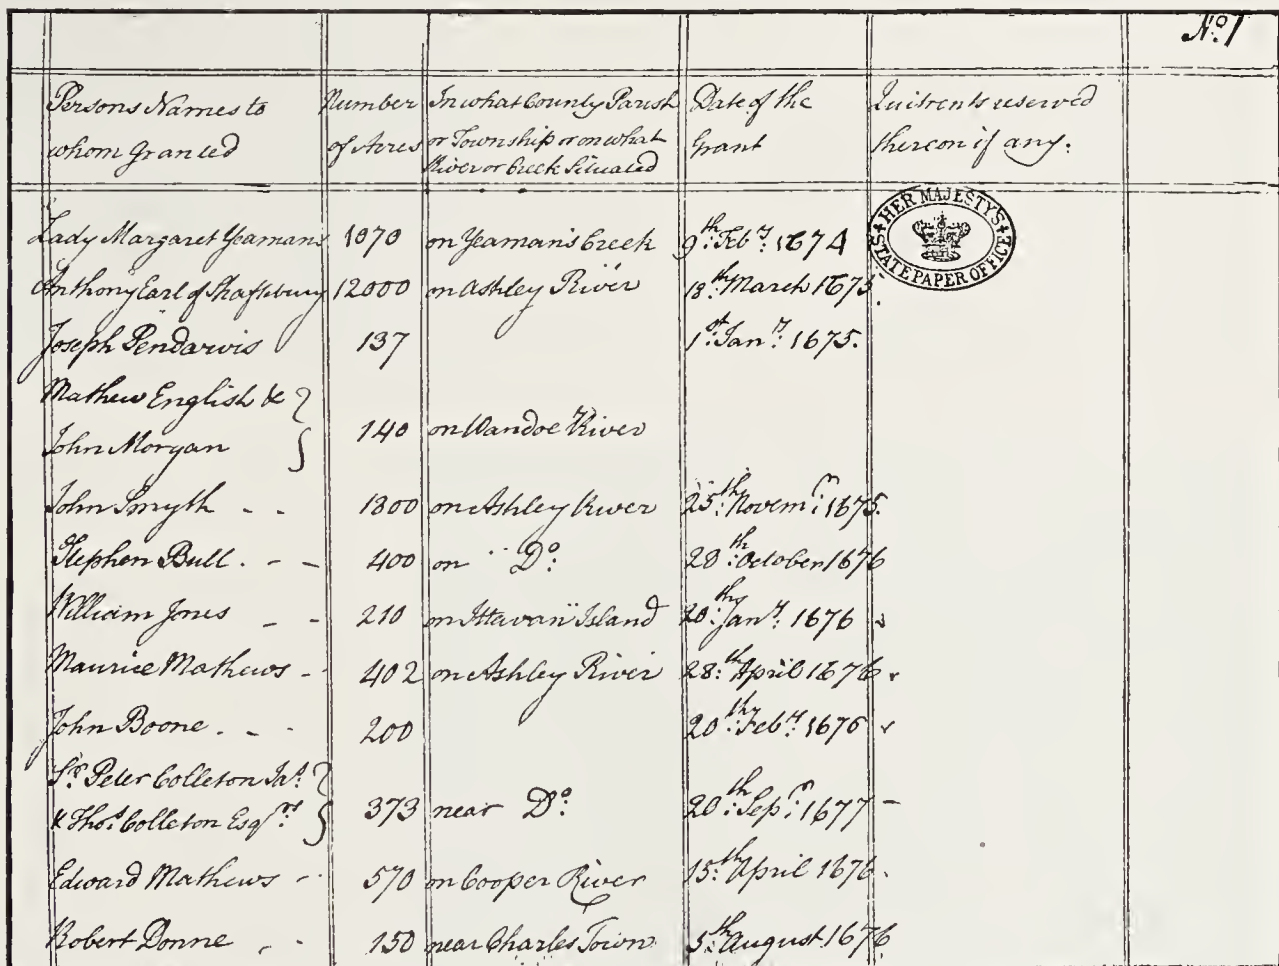 No. 1
Persons Names to whom Granted | Number of Acres | In what County Parish or Township or on what River or Creek Situated | Date of the Grant | Quitrents reserved thereon if any.
HER MAJESTY'S STATE PAPER OFFICE
Lady Margaret Yeamans 1070 on Yeaman's Creek 9th: Febry: 1674
Anthony Earl of Shaftsbury 12000 on Ashley River 18th: March 1675.
Joseph Pendarvis 137 1st: Janry: 1675.
Mathew English &
John Morgan 140 on Wandoe River
John Smyth - - 1800 on Ashley River 25th: Novemr: 1675.
Stephen Bull. - - 400 on Do: 28th: October 1676
William Jones - - 210 on Ittavan Island 20th: Janry: 1676
Maurice Mathews - 402 on Ashley River 28th: April 1676
John Boone. - - 200 20th: Febry: 1676
Sr. Peter Colleton Ja:
& Thos: Colleton Esqrs: 373 near Do: 20th: Sepr: 1677 -
Edward Mathews - 570 on Cooper River 15th: April 1676.
Robert Donne - - 150 near Charles Town 5th: August 1676